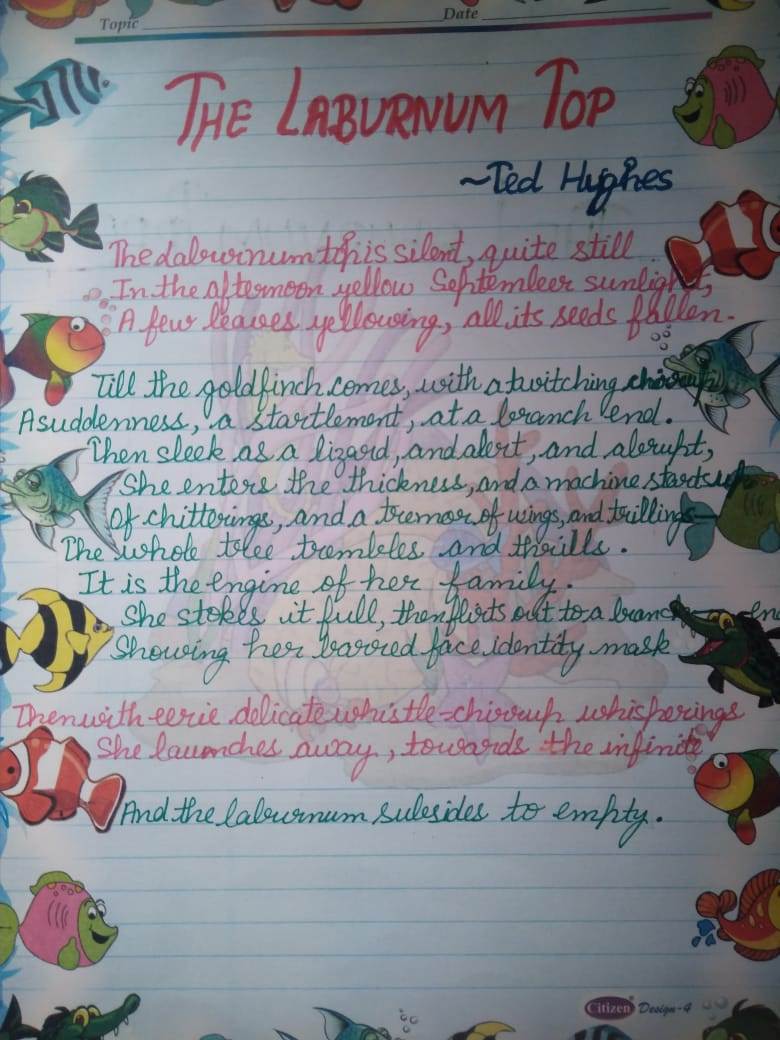 Topic Date
THE LABURNUM TOP
~Ted Hughes
The laburnum top is silent, quite still
In the afternoon yellow September sunlight,
A few leaves yellowing, all its seeds fallen.
Till the goldfinch comes, with a twitching chirrup
A suddenness, a startlement, at a branch end.
Then sleek as a lizard, and alert, and abrupt,
She enters the thickness, and a machine starts up
Of chitterings, and a tremor of wings, and trillings—
The whole tree trembles and thrills.
It is the engine of her family.
She stokes it full, then flirts out to a branch-end
Showing her barred face identity mask
Then with eerie delicate whistle-chirrup whisperings
She launches away, towards the infinite
And the laburnum subsides to empty.
Citizen Design-4